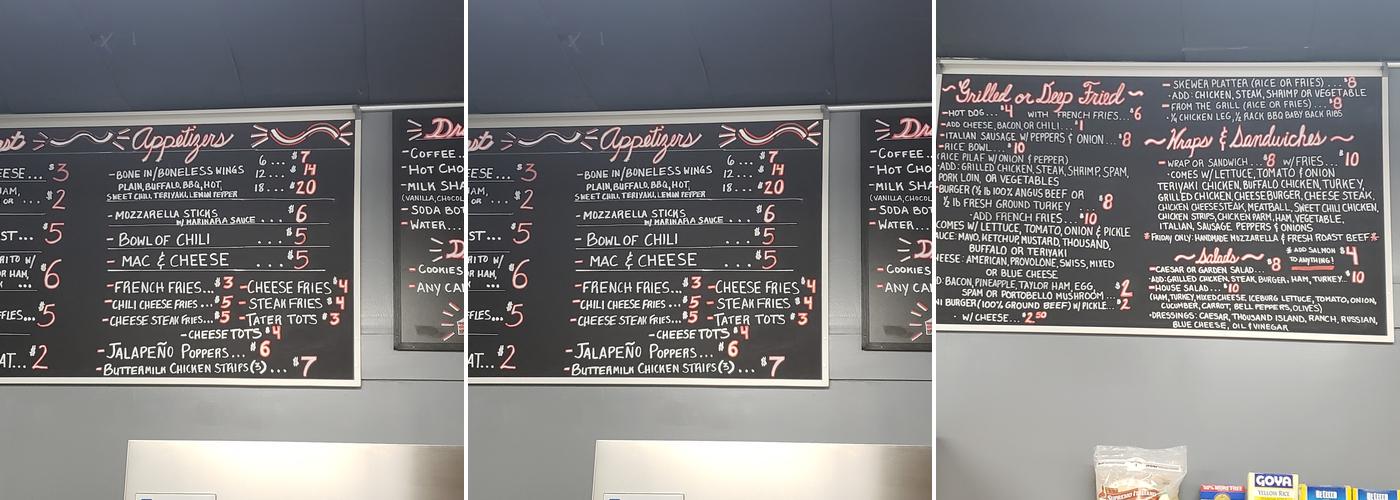 est
EESE... $3
HAM,
OR ... $2
ST... $5
RITO W/
R HAM,
... $6
FFLES... $5
AT... $2
Appetizers
-BONE IN/BONELESS WINGS 6... $7
PLAIN, BUFFALO, BBQ, HOT, 12... $14
SWEET CHILI, TERIYAKI, LEMON PEPPER 18... $20
-MOZZARELLA STICKS
W/ MARINARA SAUCE ... $6
-BOWL OF CHILI ... $5
-MAC & CHEESE ... $5
-FRENCH FRIES... $3 -CHEESE FRIES $4
-CHILI CHEESE FRIES... $5 -STEAK FRIES $4
-CHEESE STEAK FRIES... $5 -TATER TOTS $3
-CHEESE TOTS $4
-JALAPEÑO POPPERS... $6
-BUTTERMILK CHICKEN STRIPS (3)... $7
Dr
-COFFEE..
-HOT CHO
-MILK SHA
(VANILLA, CHOCOL
-SODA BOT
-WATER...
D
-COOKIES
-ANY CA
est
EESE... $3
HAM,
OR ... $2
ST... $5
RITO W/
R HAM,
... $6
FFLES... $5
AT... $2
Appetizers
-BONE IN/BONELESS WINGS 6... $7
PLAIN, BUFFALO, BBQ, HOT, 12... $14
SWEET CHILI, TERIYAKI, LEMON PEPPER 18... $20
-MOZZARELLA STICKS
W/ MARINARA SAUCE ... $6
-BOWL OF CHILI ... $5
-MAC & CHEESE ... $5
-FRENCH FRIES... $3 -CHEESE FRIES $4
-CHILI CHEESE FRIES... $5 -STEAK FRIES $4
-CHEESE STEAK FRIES... $5 -TATER TOTS $3
-CHEESE TOTS $4
-JALAPEÑO POPPERS... $6
-BUTTERMILK CHICKEN STRIPS (3)... $7
Dr
-COFFEE..
-HOT CHO
-MILK SHA
(VANILLA, CHOCOL
-SODA BOT
-WATER...
D
-COOKIES
-ANY CA
~Grilled or Deep Fried~
-HOT DOG... $4 WITH FRENCH FRIES... $6
-ADD CHEESE, BACON OR CHILI... $1
-ITALIAN SAUSAGE W/ PEPPERS & ONION... $8
-RICE BOWL... $10
(RICE PILAF W/ONION & PEPPER)
·ADD: GRILLED CHICKEN, STEAK, SHRIMP, SPAM,
PORK LOIN, OR VEGETABLES
BURGER (½ lb 100% ANGUS BEEF OR
½ lb FRESH GROUND TURKEY $8
·ADD FRENCH FRIES... $10
COMES W/ LETTUCE, TOMATO, ONION & PICKLE
AUCE: MAYO, KETCHUP, MUSTARD, THOUSAND,
BUFFALO OR TERIYAKI
HEESE: AMERICAN, PROVOLONE, SWISS, MIXED
OR BLUE CHEESE
D: BACON, PINEAPPLE, TAYLOR HAM, EGG,
SPAM OR PORTOBELLO MUSHROOM... $2
NI BURGER (100% GROUND BEEF) W/ PICKLE... $2
· W/ CHEESE... $2.50
-SKEWER PLATTER (RICE OR FRIES)... $8
·ADD: CHICKEN, STEAK, SHRIMP OR VEGETABLE
-FROM THE GRILL (RICE OR FRIES)... $8
·¼ CHICKEN LEG, ½ RACK BBQ BABY BACK RIBS
Wraps & Sandwiches~
-WRAP OR SANDWICH... $8 W/FRIES... $10
·COMES W/ LETTUCE, TOMATO & ONION
TERIYAKI CHICKEN, BUFFALO CHICKEN, TURKEY,
GRILLED CHICKEN, CHEESEBURGER, CHEESE STEAK,
CHICKEN CHEESESTEAK, MEATBALL, SWEET CHILI CHICKEN,
CHICKEN STRIPS, CHICKEN PARM, HAM, VEGETABLE,
ITALIAN, SAUSAGE PEPPERS & ONIONS
*FRIDAY ONLY: HANDMADE MOZZARELLA & FRESH ROAST BEEF*
~Salads~ & ADD SALMON $4
TO ANYTHING!
-CAESAR OR GARDEN SALAD... $8
·ADD: GRILLED CHICKEN, STEAK, BURGER, HAM, TURKEY... $10
-HOUSE SALAD... $10
(HAM, TURKEY, MIXED CHEESE, ICEBURG LETTUCE, TOMATO, ONION,
CUCUMBER, CARROT, BELL PEPPERS, OLIVES)
·DRESSINGS: CAESAR, THOUSAND ISLAND, RANCH, RUSSIAN,
BLUE CHEESE, OIL & VINEGAR
SUPREMO ITALIANO
GOYA
YELLOW RICE